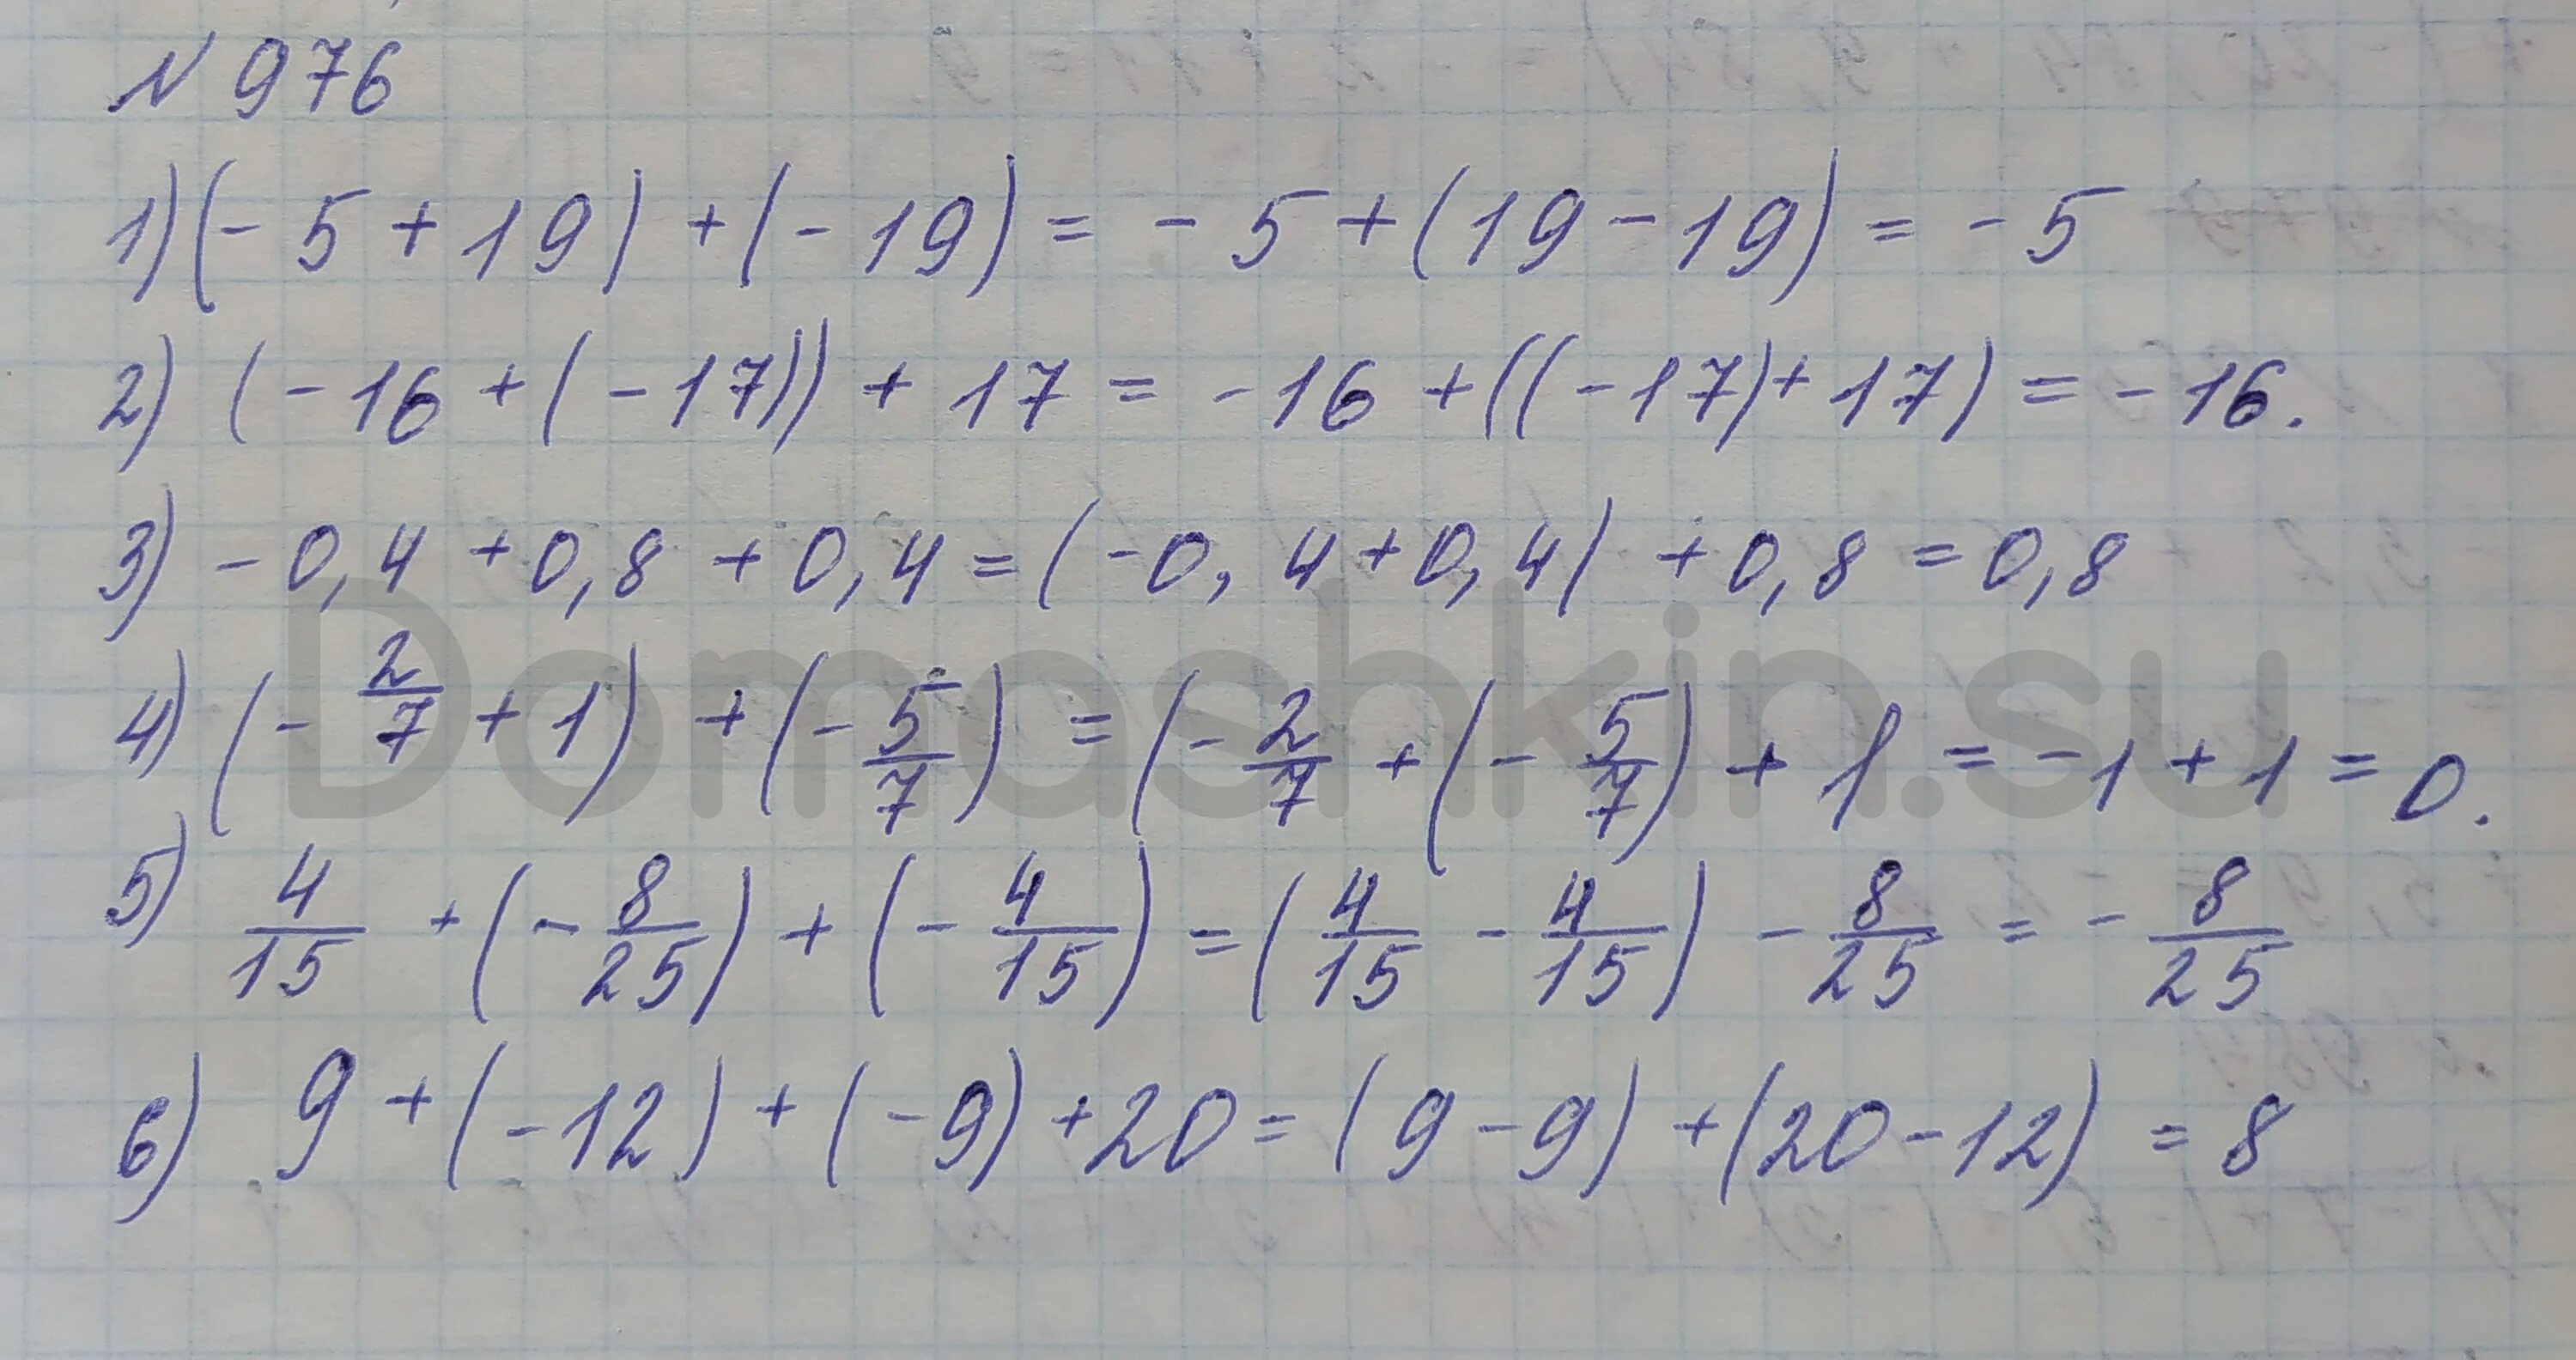 № 976
1) (-5 + 19) + (-19) = -5 + (19 - 19) = -5
2) (-16 + (-17)) + 17 = -16 + ((-17) + 17) = -16.
3) -0,4 + 0,8 + 0,4 = (-0,4 + 0,4) + 0,8 = 0,8
4) (-2/7 + 1) + (-5/7) = (-2/7 + (-5/7) + 1 = -1 + 1 = 0.
5) 4/15 + (-8/25) + (-4/15) = (4/15 - 4/15) - 8/25 = -8/25
6) 9 + (-12) + (-9) + 20 = (9 - 9) + (20 - 12) = 8
Domashkin.su